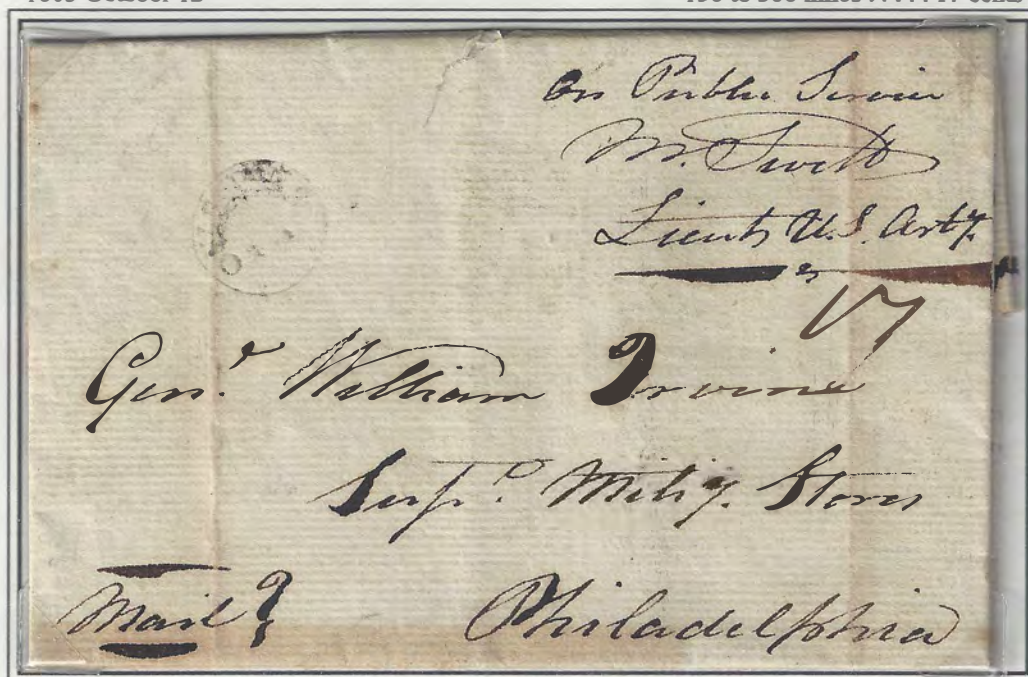 On Public Service
M. Swett
Lieut. U.S. Arty.
17
Gen.l William Irvine
Supt. Miliy. Stores
Mail
Philadelphia